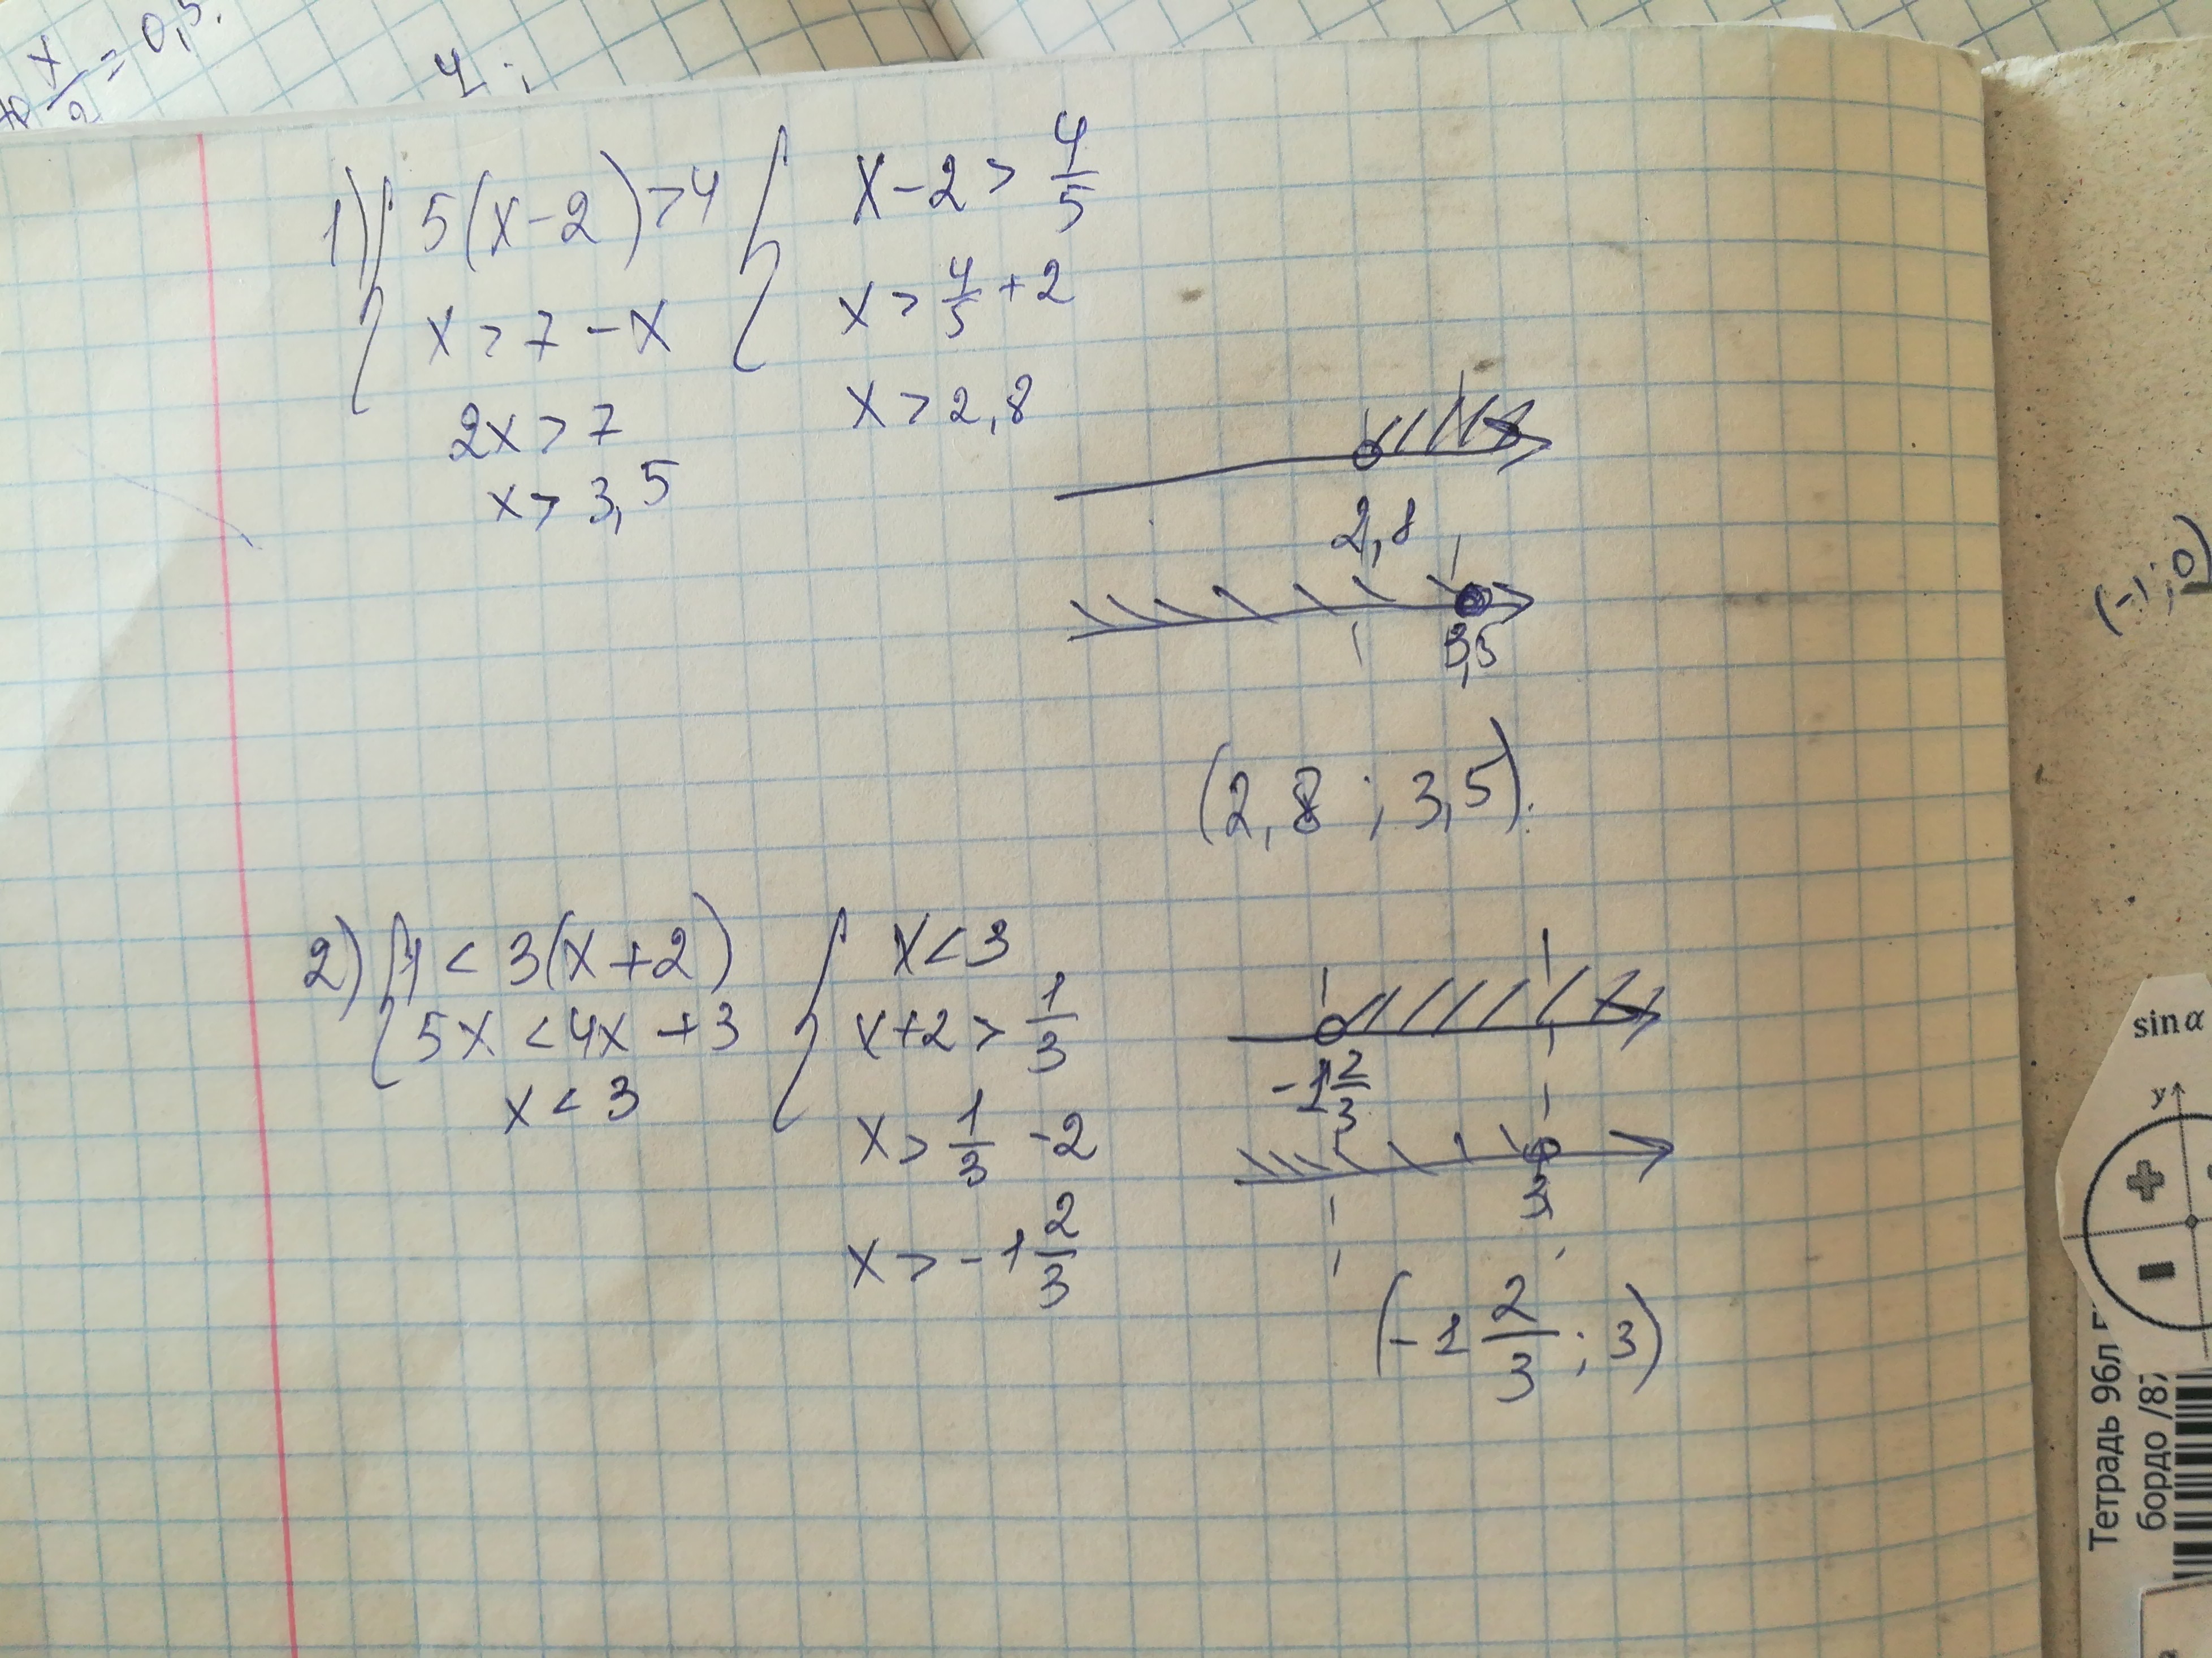 x/2 = 0,5.
4 ;
1) { 5(x-2) > 4 { x-2 > 4/5
x > 7 - x x > 4/5 + 2
2x > 7 x > 2,8
x > 3,5
2,8
3,5
(2,8 ; 3,5).
2) { 1 < 3(x+2) { x < 3
5x < 4x + 3 x+2 > 1/3
x < 3 x > 1/3 - 2
x > -1 2/3
-1 2/3
3
(-1 2/3 ; 3)
(-1; 0)
sin α
y
+
-
Тетрадь 96л
бордо /87